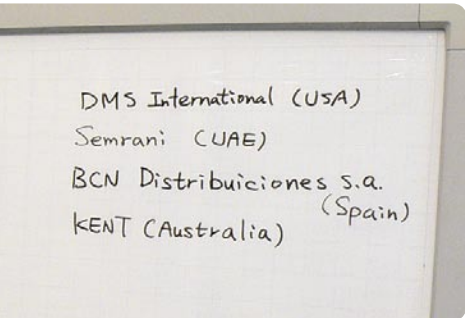 DMS International (USA)
Semrani (UAE)
BCN Distribuiciones s.a.
(Spain)
KENT (Australia)